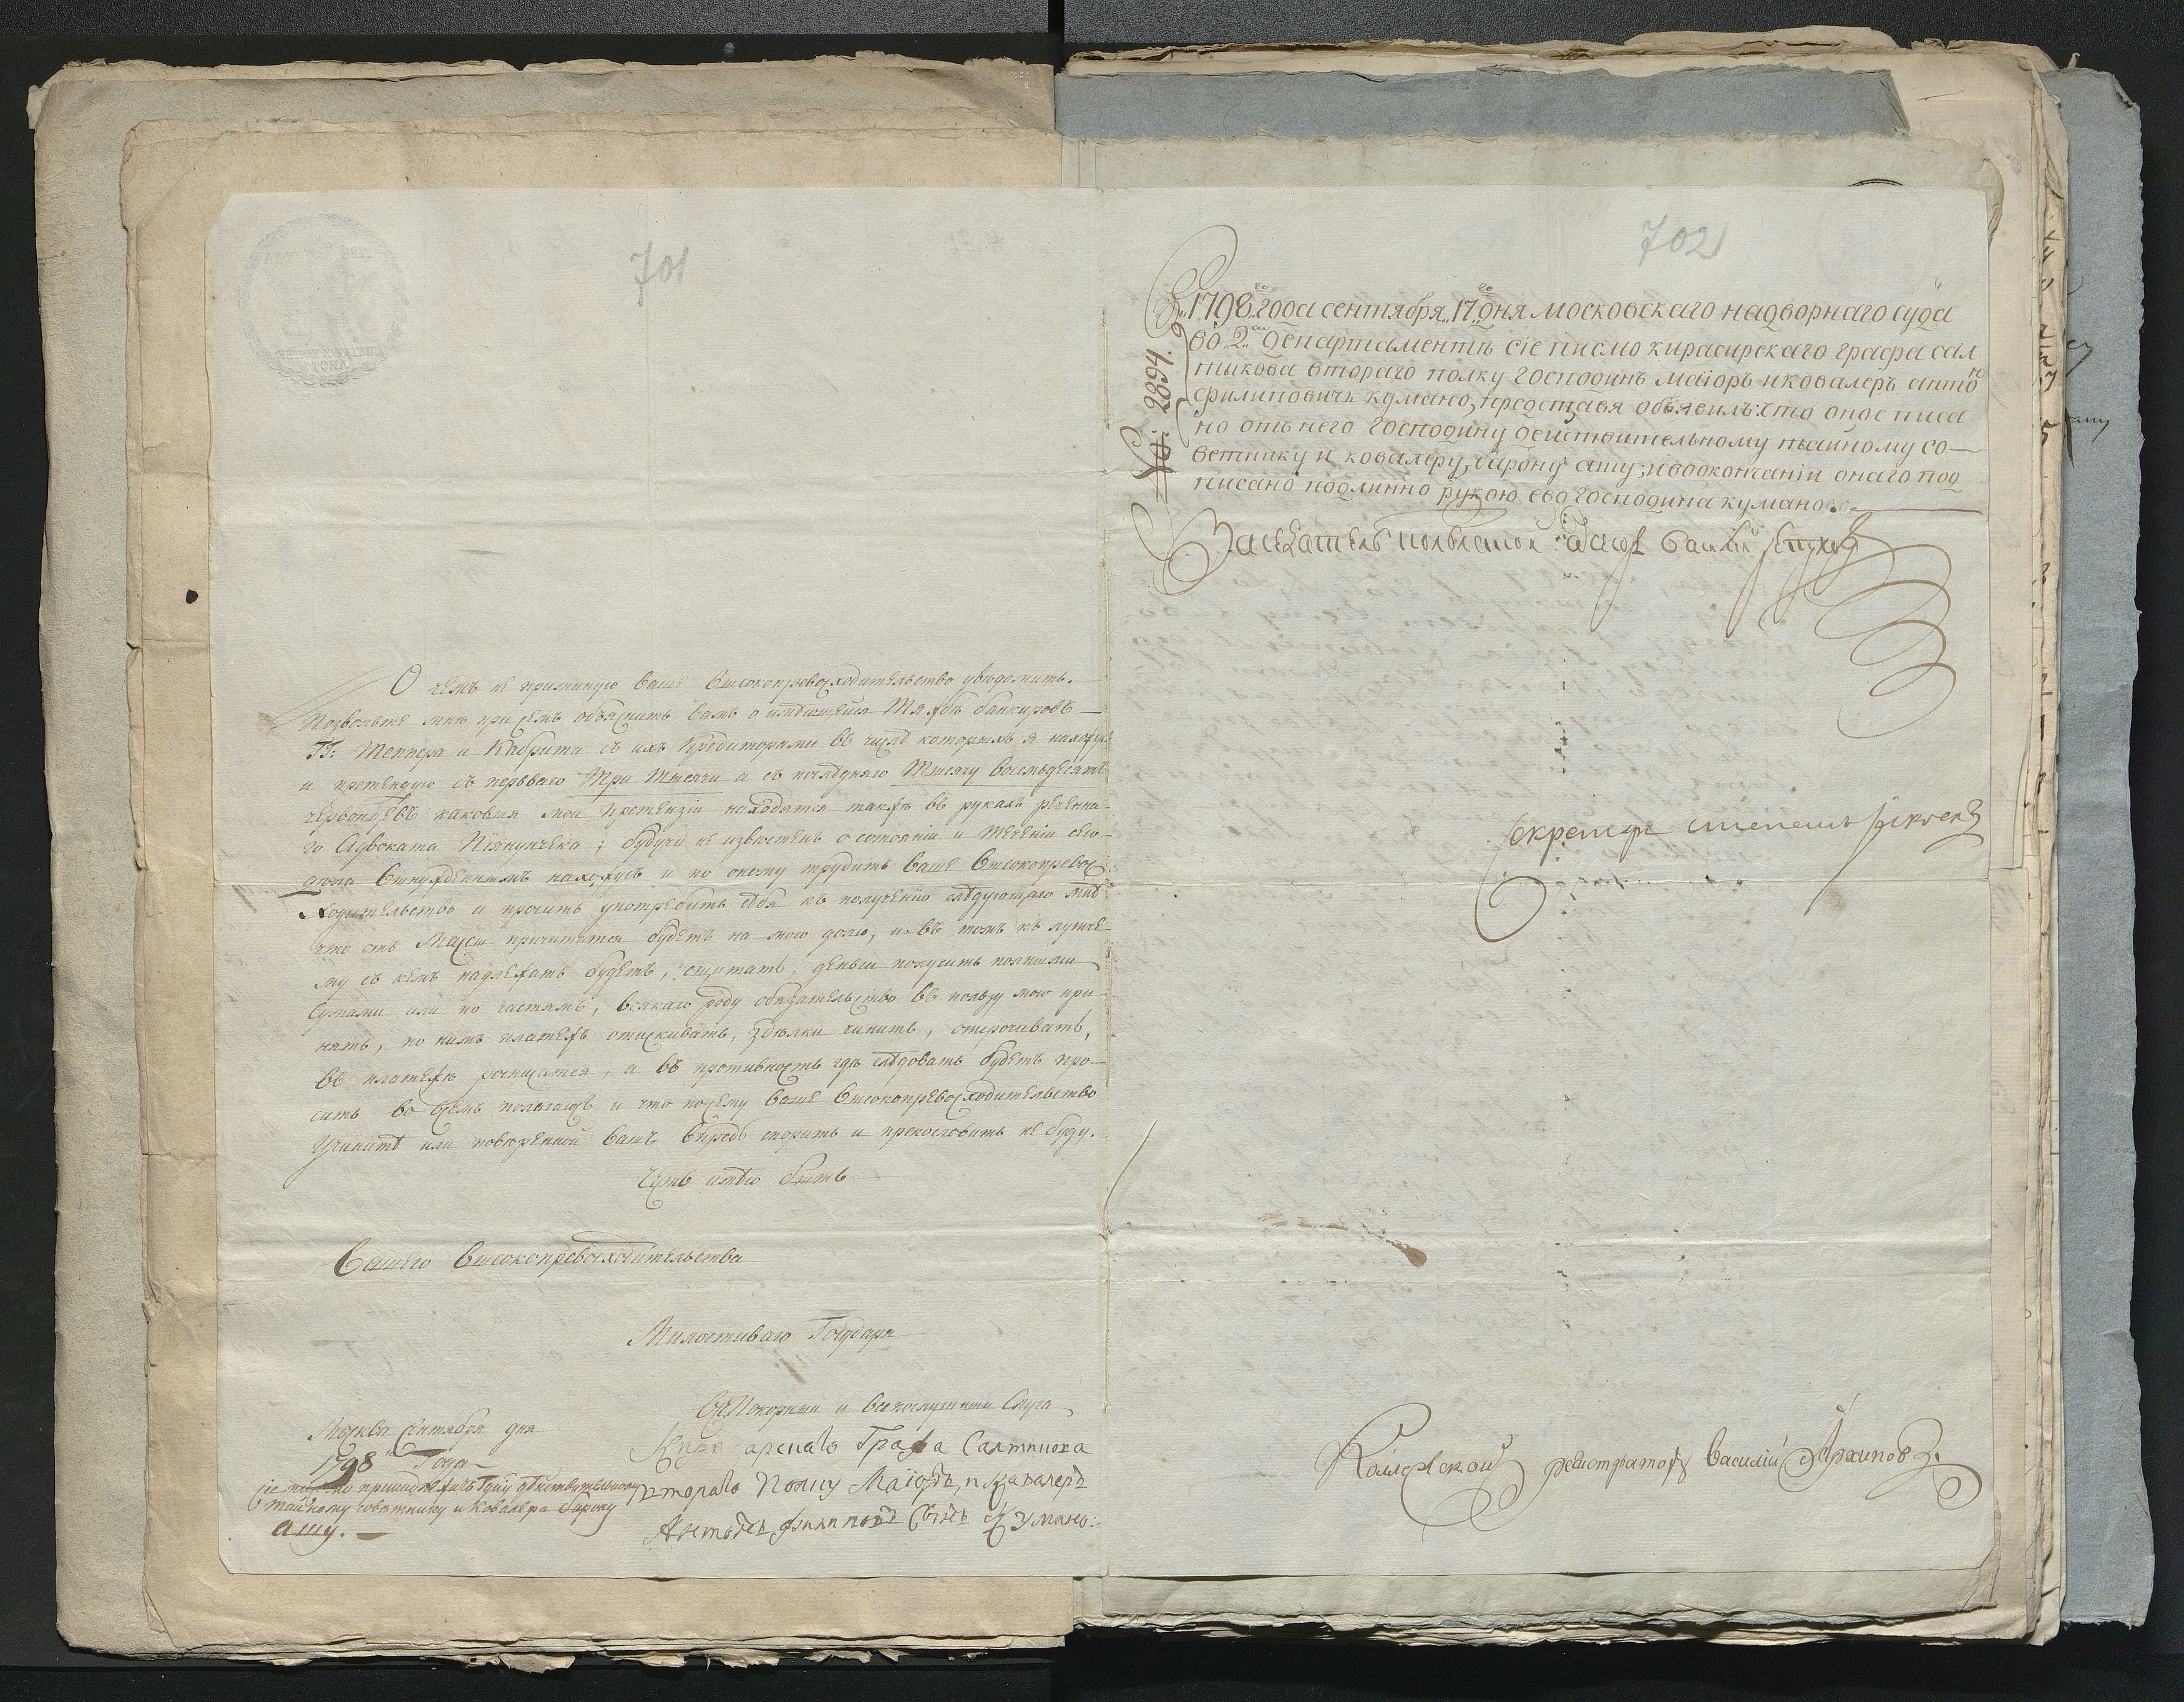 701
О чемъ не приминую Ваше Высокопревосходительство уведомить.
Позвольте мнѣ при семъ объяснить вамъ о имѣющейся тяжбѣ банкировъ
ГГ: Теппера и Кабрита съ ихъ Кредиторами въ числѣ которыхъ я нахожусь
и претендую съ перьваго три тысячи а съ послѣдняго тысячу восемьдесятъ
червонцевъ каковыя мои претензіи находятся также въ рукахъ реченна-
го Адвоката; будучи не извѣстенъ о состояніи и теченіи сего
дѣла вынужденнымъ нахожусь и по оному трудить Ваше Высокопревос
ходительство и просить употребить себя къ полученію слѣдующаго мнѣ
что отъ Массы причитатся будетъ на мою долю, и въ томъ къ лутче-
му съ кемъ надлежать будетъ, сщитать, деньги получить полными
сумами или по частямъ, всякаго роду обязательство въ пользу мою при-
нять, по нимъ платежъ отыскивать, здѣлки чинить, отсрочивать,
въ платежѣ росписатся, а въ противность гдѣ слѣдовать будетъ про-
сить во всемъ полагаюсь и что посему Ваше Высокопревосходительство
Учините или повѣренной Вашъ впредь спорить и прекословить не буду.
Честь имѣю быть
Вашего Высокопревосходительства
Милостиваго Государя
всепокорный и всепослушный Слуга
Москва Сентября дня
1798 Года
Кирасирскаго Графа Салтыкова
втораго Полку Маіоръ, и Кавалеръ
Антонъ Филиповъ Сынъ Кумано:
Сіе писмо принадлежитъ Гдну действительному
тайному советнику и Ковалера барону
ашу.
702
№: 2894.
1798го года сентября 17го дня московскаго надворнаго суда
во 2мъ департаментѣ сіе писмо кирасирскаго графа сал
тыкова втораго полку господинъ маіоръ и ковалеръ антон
филиповичь кумано, представя объявилъ: что оное писа
но отъ него господину действительному тайному со-
ветнику и ковалеру, барону ашу, и воокончаніи онаго под
писано подлинно рукою ево господина кумано
Заседатель
Секретарь степанъ
Колежской регистраторъ Василій Архиповъ.